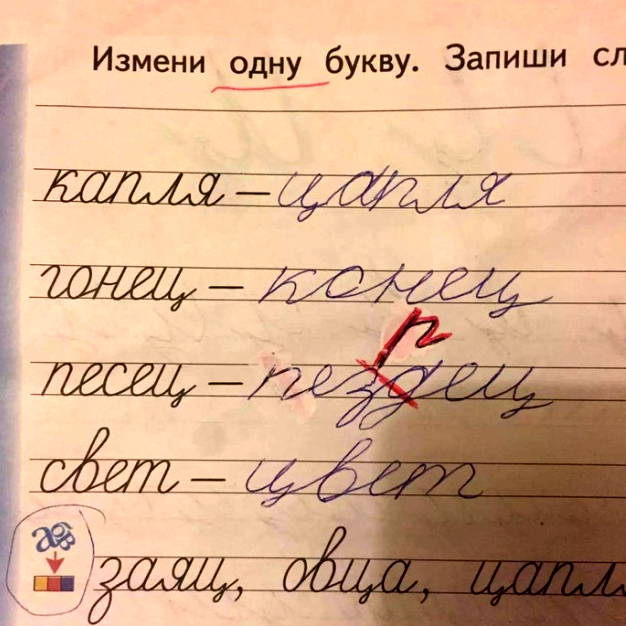 Измени одну букву. Запиши сл
капля – цапля
гонец – конец
р
песец – пездец
свет – цвет
заяц, овца, цапл